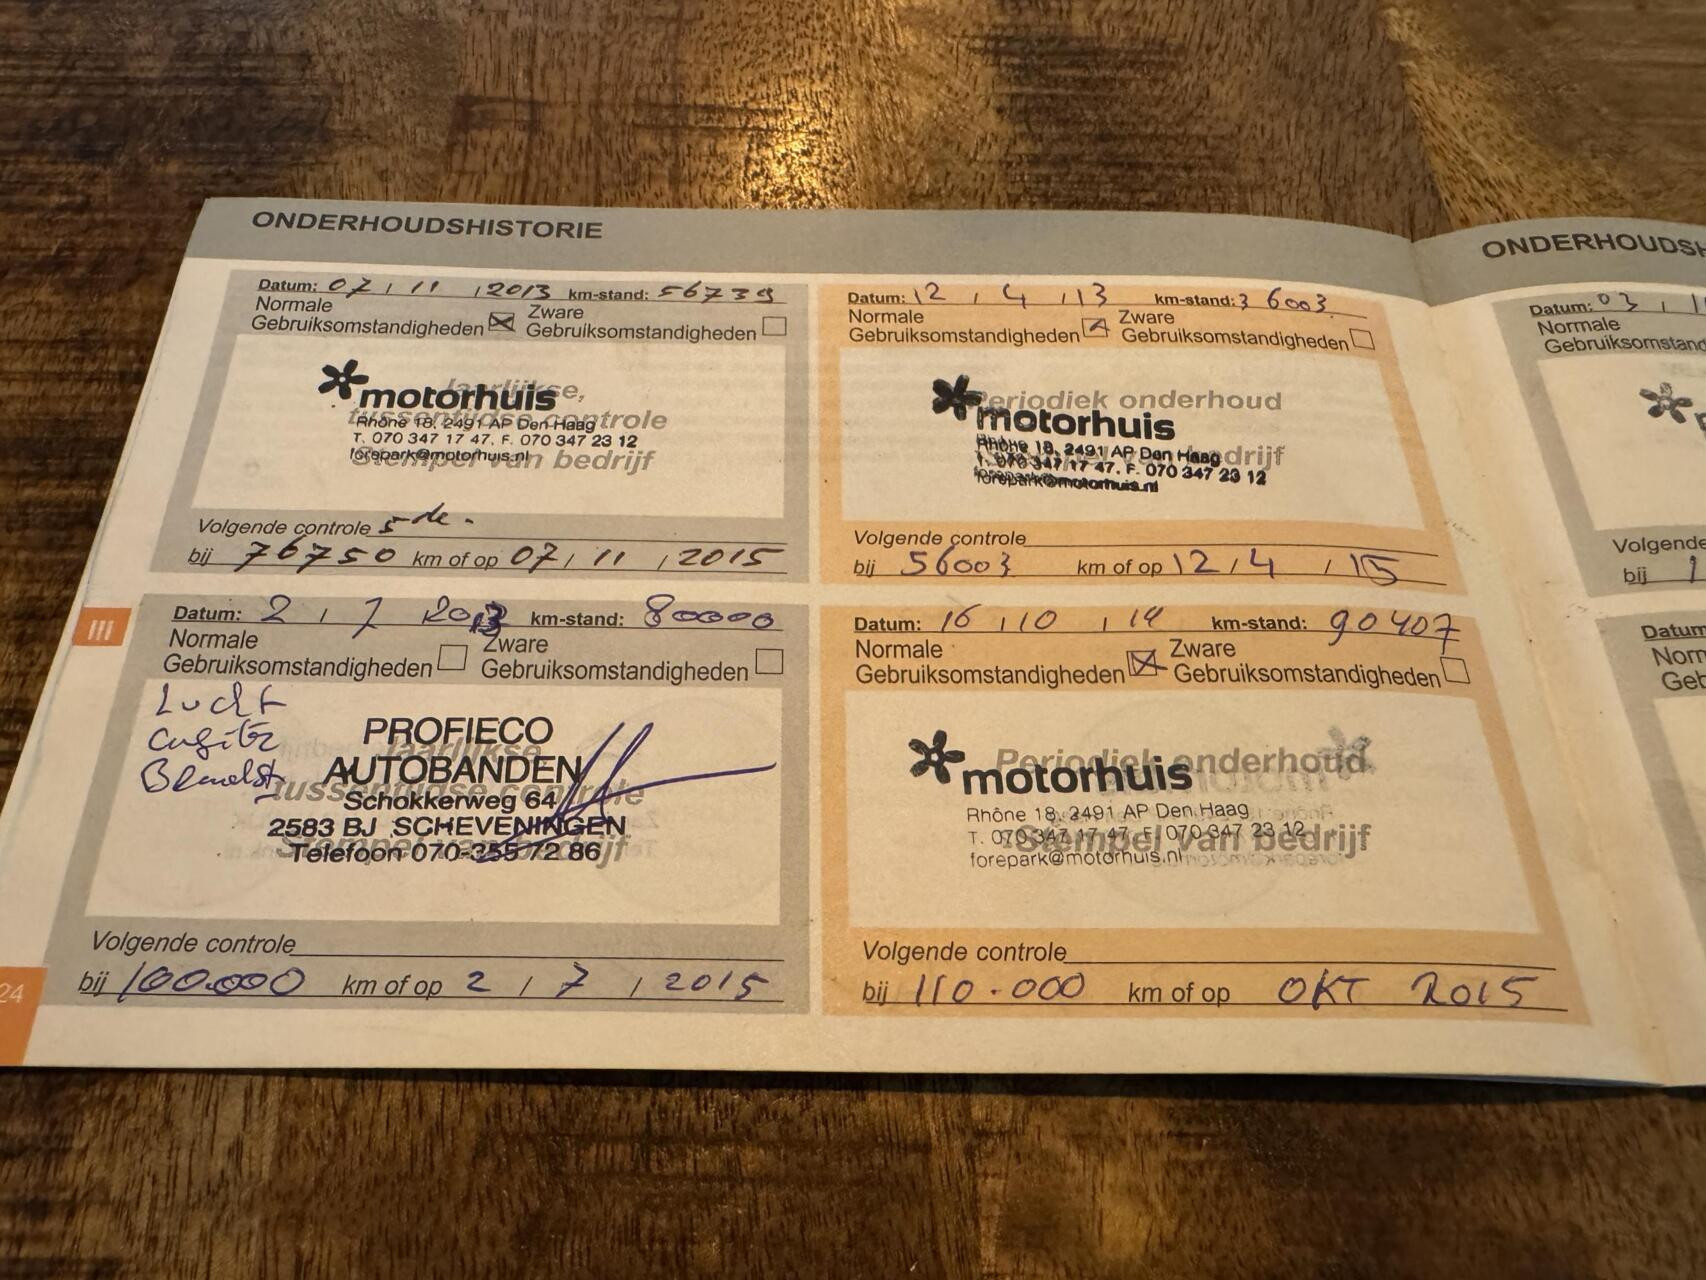 ONDERHOUDSHISTORIE
Datum: 07 / 11 / 2013 km-stand: 56739
Normale Gebruiksomstandigheden ☒ Zware Gebruiksomstandigheden ☐
Jaarlijkse,
motorhuis
tussentijdse controle
Rhône 18, 2491 AP Den Haag
T. 070 347 17 47, F. 070 347 23 12
forepark@motorhuis.nl
Stempel van bedrijf
Volgende controle 5 de.
bij 76750 km of op 07 / 11 / 2015
Datum: 12 / 4 / 13 km-stand: 36003
Normale Gebruiksomstandigheden ☒ Zware Gebruiksomstandigheden ☐
Periodiek onderhoud
motorhuis
Rhône 18, 2491 AP Den Haag
T. 070 347 17 47, F. 070 347 23 12
forepark@motorhuis.nl
Stempel van bedrijf
Volgende controle
bij 56003 km of op 12 / 4 / 15
III
Datum: 2 / 7 2013 km-stand: 80000
Normale Gebruiksomstandigheden ☐ Zware Gebruiksomstandigheden ☐
Lucht
PROFIECO
Jaarlijkse
AUTOBANDEN
tussentijdse controle
Schokkerweg 64
2583 BJ SCHEVENINGEN
Stempel van bedrijf
Telefoon 070-355 72 86
Volgende controle
bij 100.000 km of op 2 / 7 / 2015
24
Datum: 16 / 10 / 14 km-stand: 90407
Normale Gebruiksomstandigheden ☒ Zware Gebruiksomstandigheden ☐
Periodiek onderhoud
motorhuis
Rhône 18, 2491 AP Den Haag
T. 070 347 17 47, F. 070 347 23 12
Stempel van bedrijf
forepark@motorhuis.nl
Volgende controle
bij 110.000 km of op OKT 2015
ONDERHOUDSH
Datum: 03 / 1
Normale
Gebruiksomstand
Volgende
bij 1
Datum
Norm
Geb